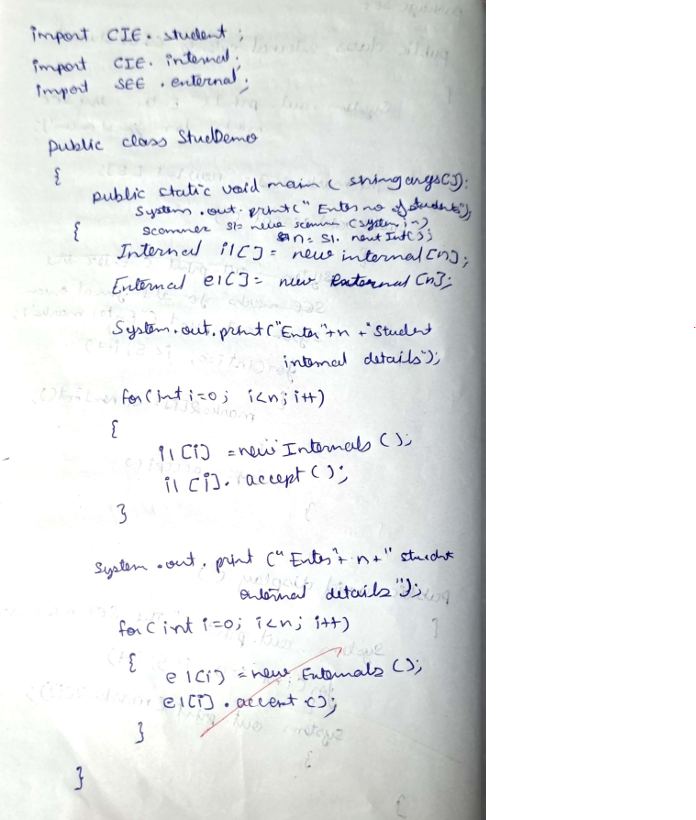 import CIE. student ;
import CIE. internal;
import SEE . external;
public class StudDemo
{
public static void main ( string args[]);
System .out. print (" Enter no of students");
Scanner S1= new scanner (system.in)
{
n= S1. next Int();
Internal i1[] = new internal[n];
External e1[] = new External [n];
System.out.print("Enter"+n +"Student
internal details");
for(int i=0; i<n; i++)
{
i1 [i] = new Internals ();
i1 [i]. accept ();
}
System .out. print ("Enter"+ n +" student
external details");
for( int i=0; i<n; i++)
{
e1[i] = new Externals ();
e1[i] . accept ();
}
}